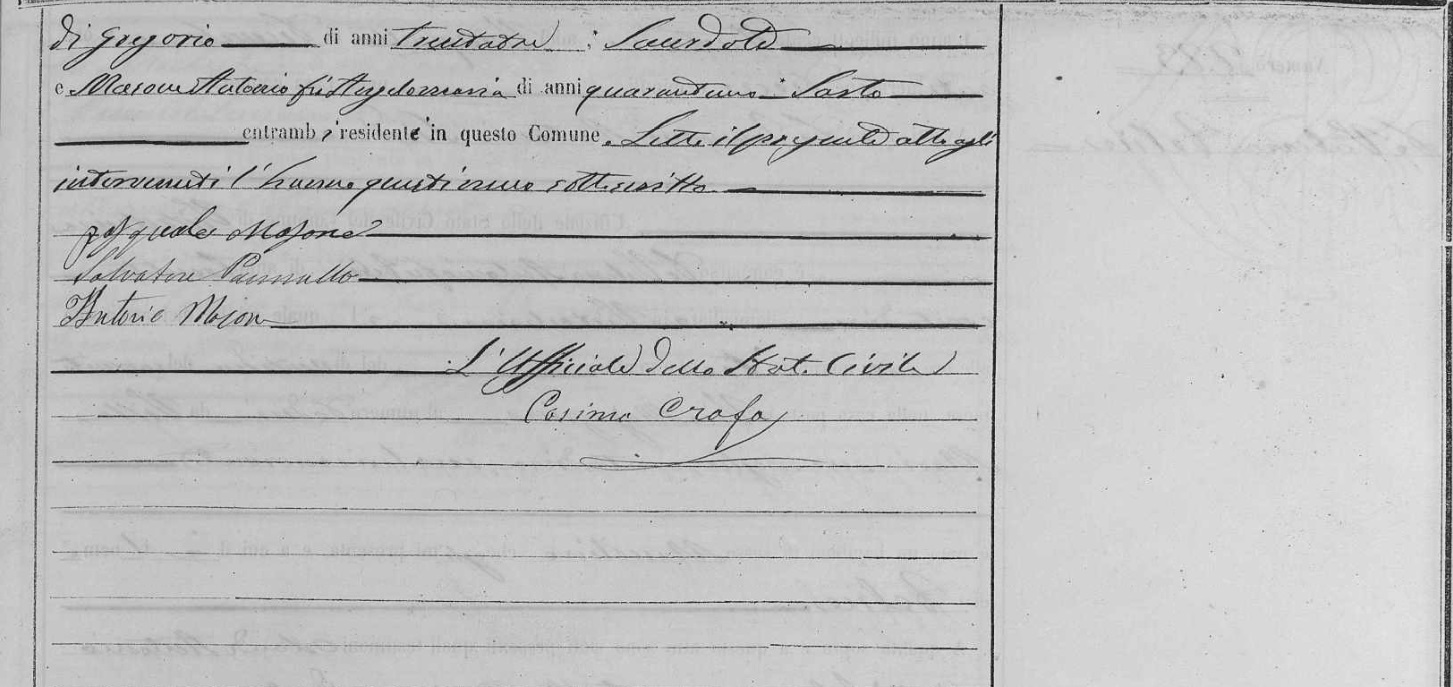 di Gregorio di anni trentatre, Sacerdote
e Masone Antonio fu Angelomaria di anni quarantuno Sarto
entrambi residenti in questo Comune. Letto il presente atto agli
intervenuti l'hanno quest'meco sottoscritto
pasquale Masone
Salvatore Pannullo
Antonio Mason
L'Ufficiale dello Stato Civile
Cosimo Crafa